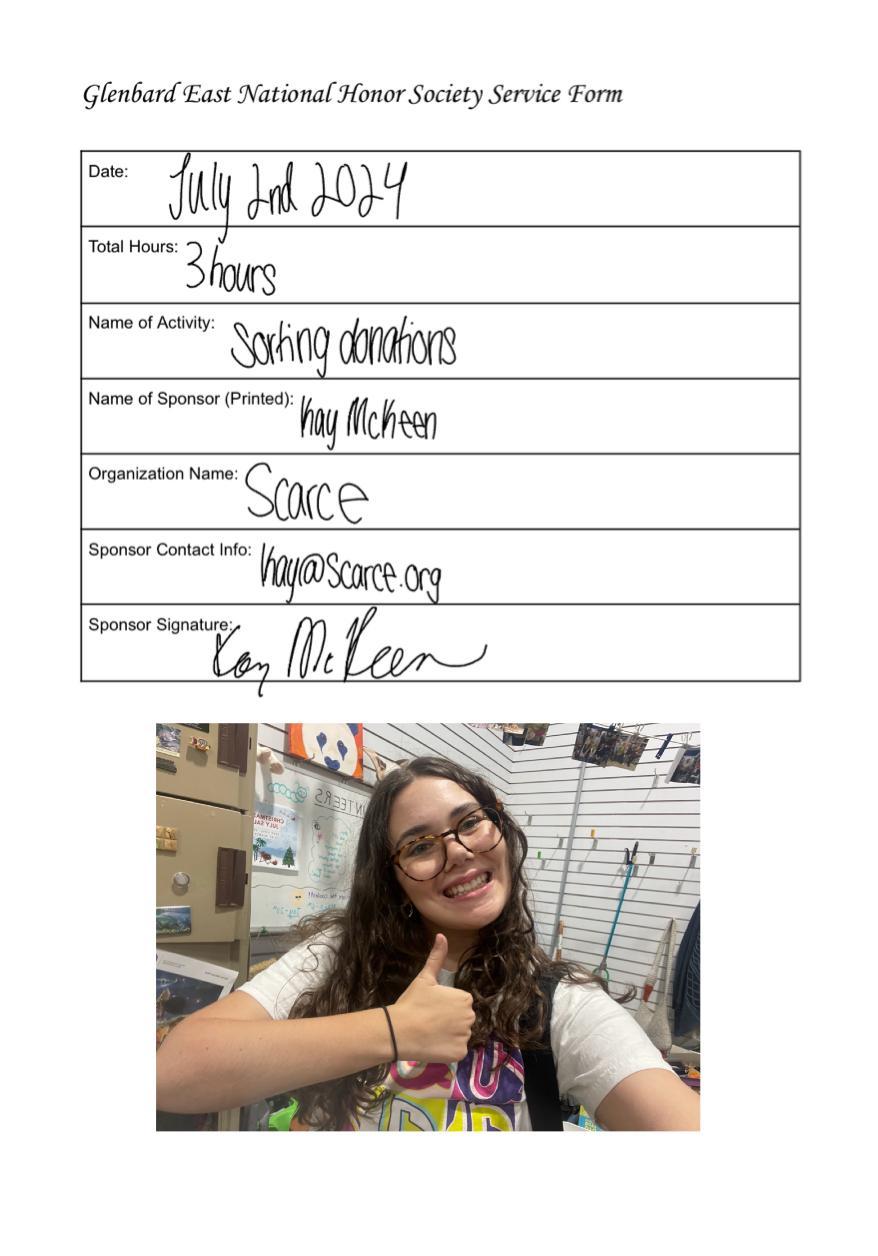 Glenbard East National Honor Society Service Form
Date: July 2nd 2024
Total Hours: 3 hours
Name of Activity: Sorting donations
Name of Sponsor (Printed): Kay McKeen
Organization Name: Scarce
Sponsor Contact Info: kay@scarce.org
Sponsor Signature: Kay McKeen
CHRISTMAS
JULY SA
NTEERS